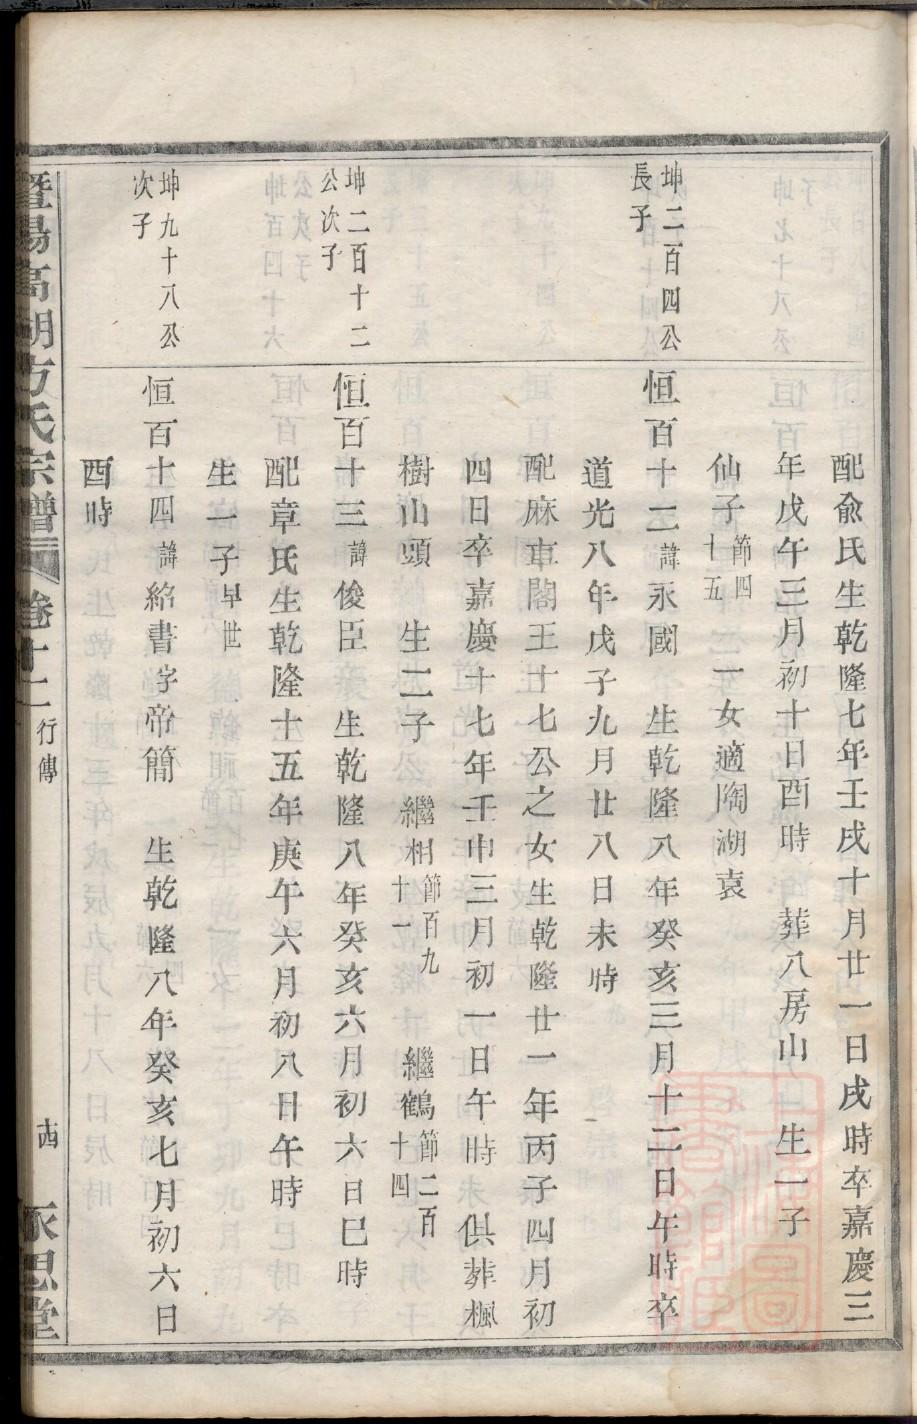 配俞氏生乾隆七年壬戌十月廿一日戌時卒嘉慶三
年戊午三月初十日酉時 葬八房山 生一子
仙子節四十五 一女適陶湖袁
坤二百四公長子
恒百十二諱永國 生乾隆八年癸亥三月十二日午時卒
道光八年戊子九月廿八日未時
配麻車閣王十七公之女生乾隆廿一年丙子四月初
四日卒嘉慶十七年壬申三月初一日午時 俱葬楓
樹山頭 生二子 繼相節百九十一 繼鶴節二百十四
坤二百十二公次子
恒百十三諱俊臣 生乾隆八年癸亥六月初六日巳時
配章氏生乾隆十五年庚午六月初八日午時
生一子早世
坤九十八公次子
恒百十四諱紹書字帝簡 生乾隆八年癸亥七月初六日
酉時
暨陽高湖方氏宗譜 卷十二 行傳 永思堂